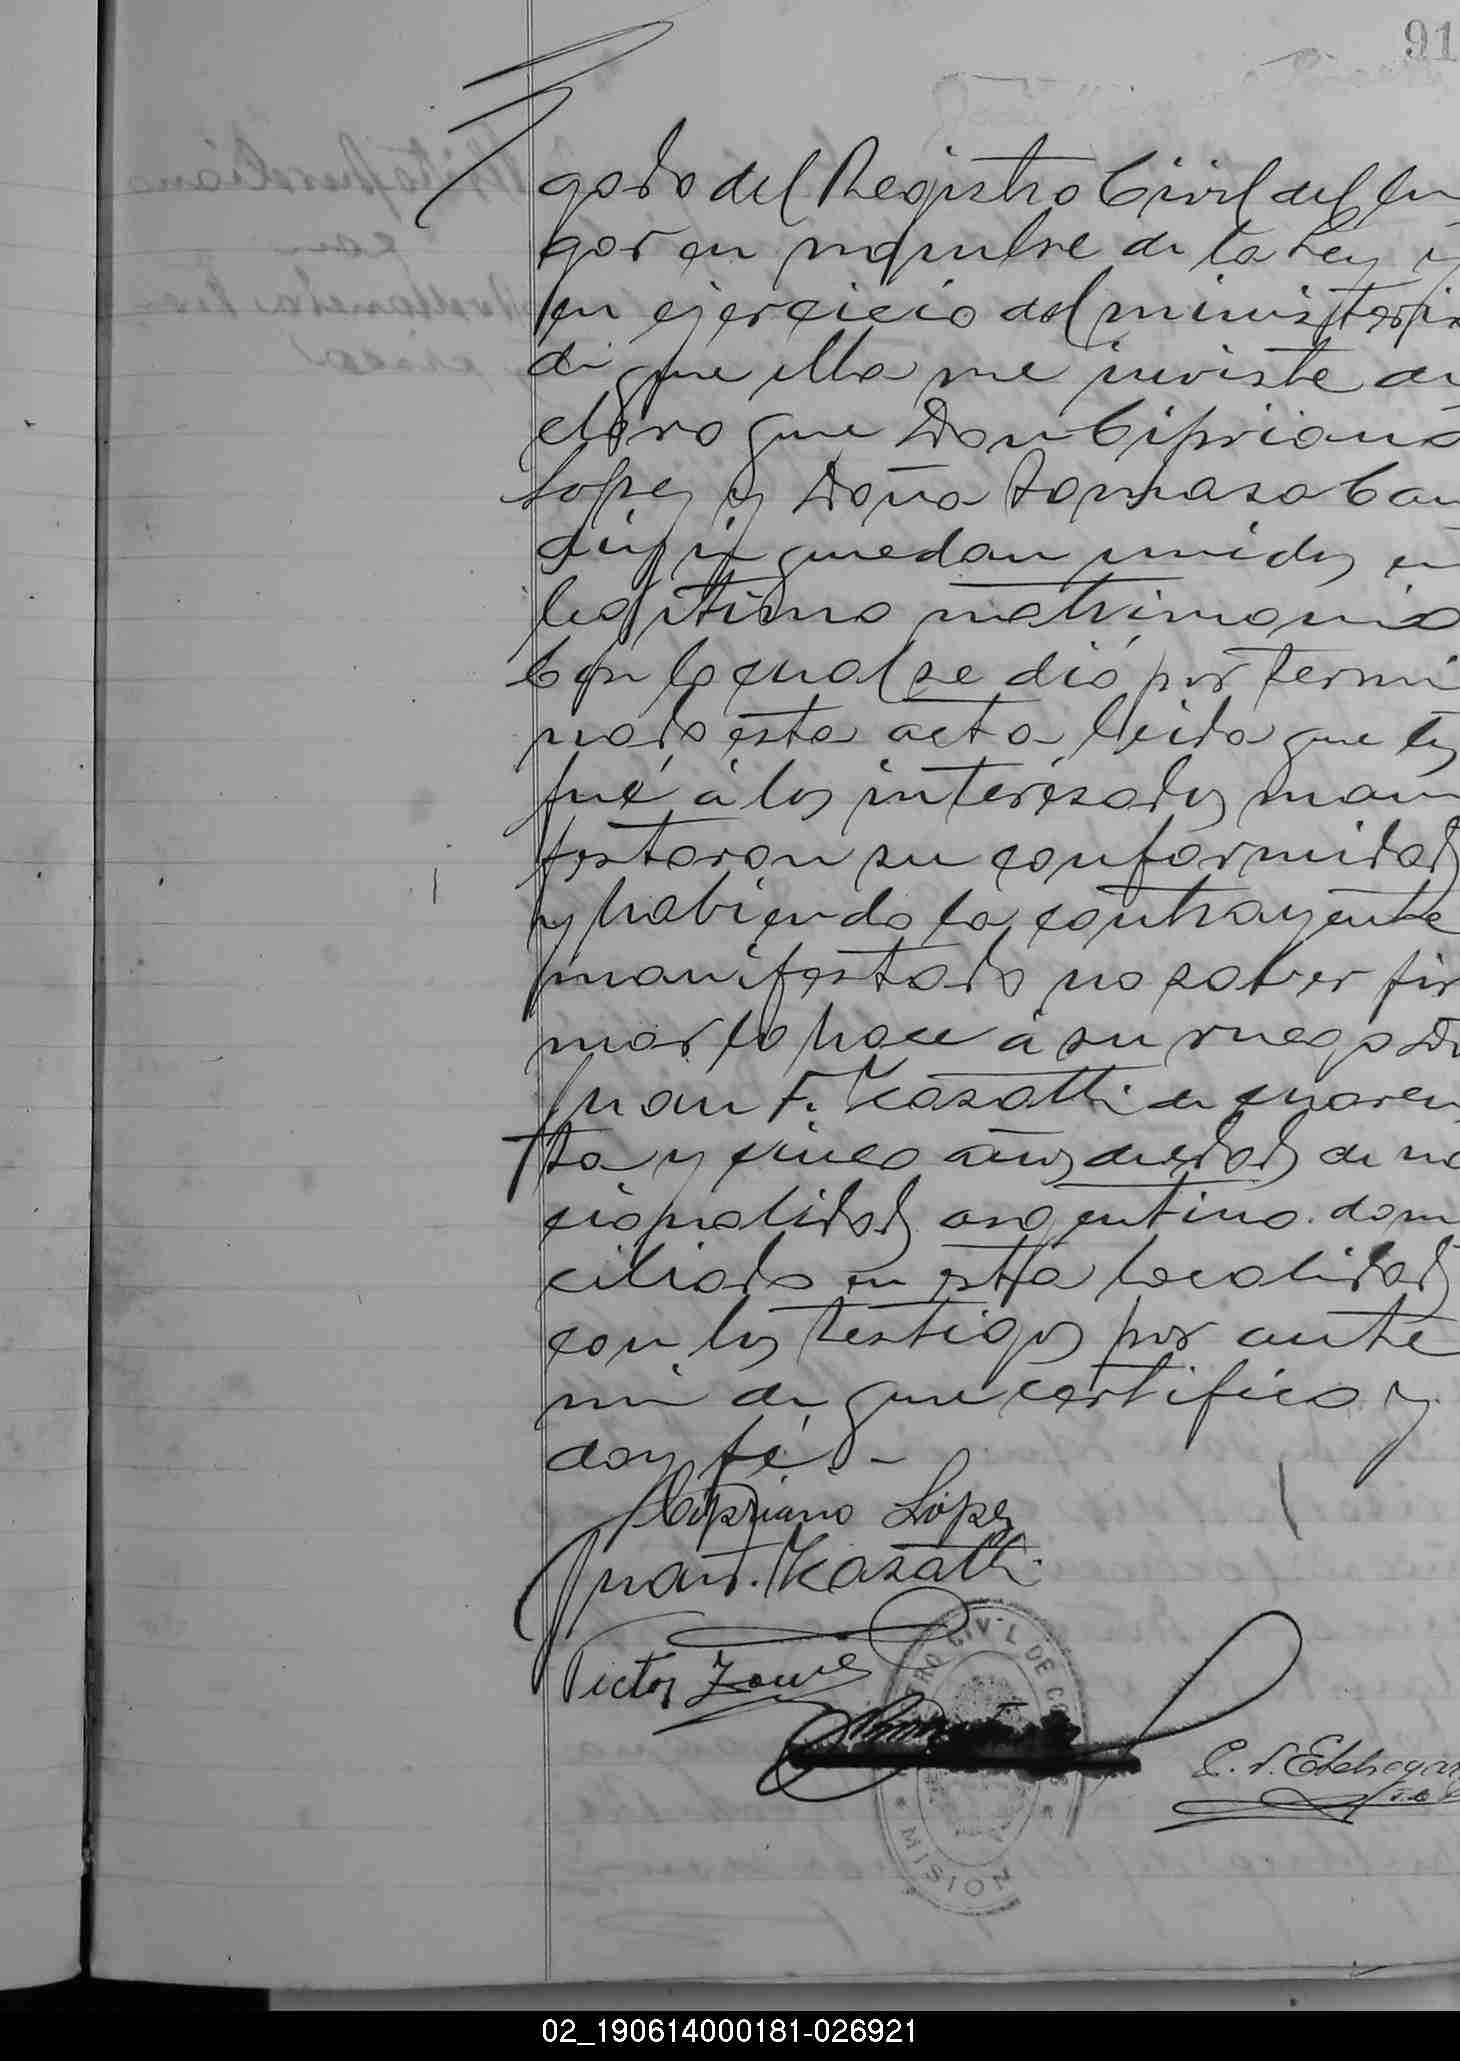 91
gado del Registro Civil del lu
gar en nombre de la Ley y
en ejercicio del ministerio
de que ella me inviste de
claro que Don Cipriano
Lopez y Doña Tomasa Can
quedan unidos en
legitimo matrimonio
Con lo cual se dió por termi
nada esta acta leida que les
fué á los interesados mani
festaron su conformidad
y habiendo la contrayente
manifestado no saber fir
mar lo hace á su ruego Dn
Juan F. Kasatti de cuaren
ta y cinco años de edad de na
cionalidad argentino domi
ciliado en esta localidad
con los testigos por ante
mi de que certifico y
doy fé.-
Cipriano López
Juan F. Kasatti
Victor
CIVIL DE
MISION
02_190614000181-026921